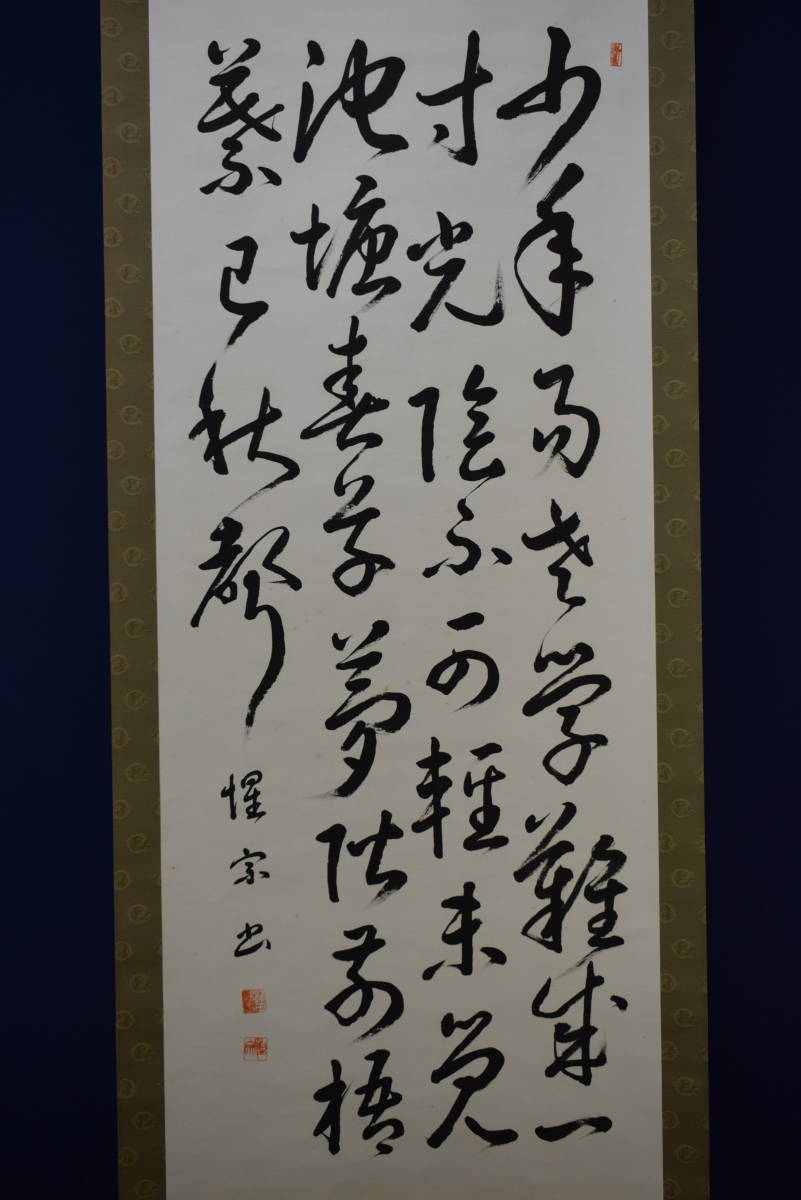 少年易老学難成一
寸光陰不可輕未覚
池塘春草夢階前梧
葉已秋聲
惺宗書